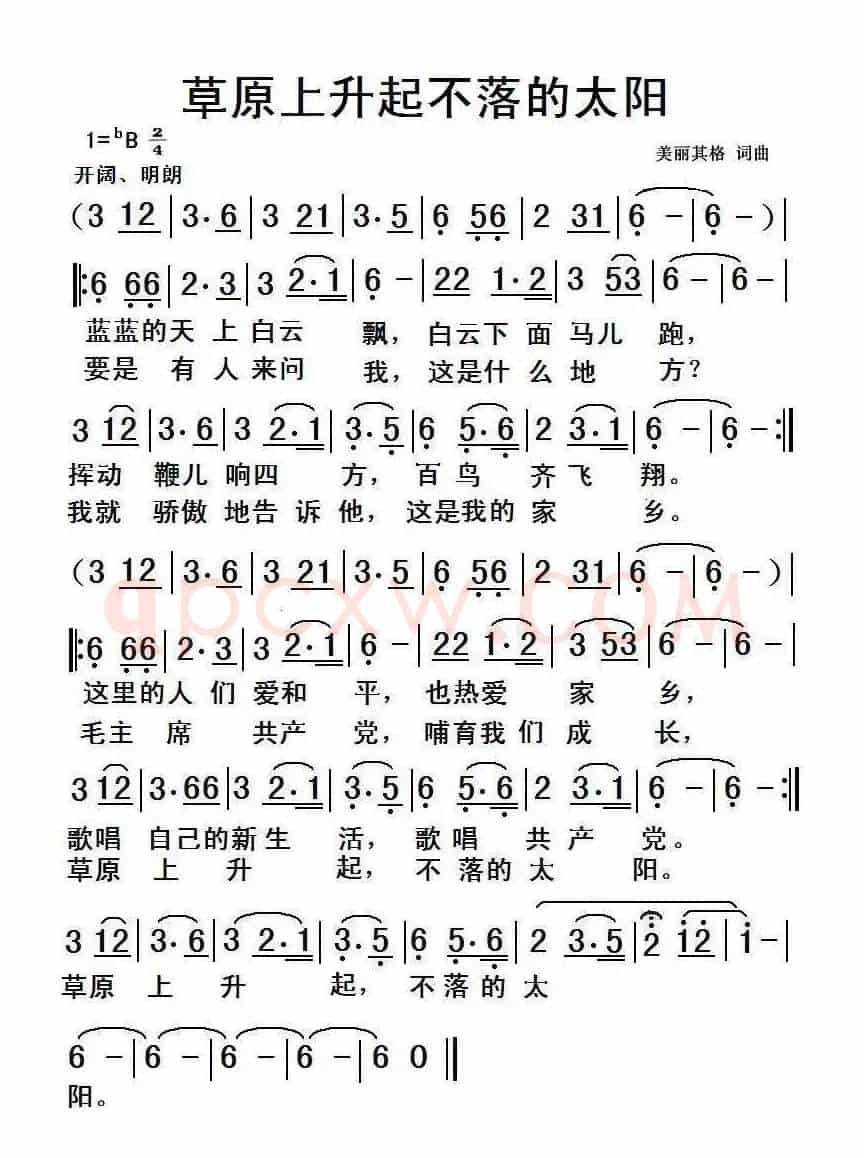 草原上升起不落的太阳
1=ᵇB 2/4
美丽其格 词曲
开阔、明朗
(3 12|3·6|3 21|3·5|6 56|2 31|6 -|6 -)|
‖:6 66|2·3|3 2·1|6 -|22 1·2|3 53|6 -|6 -|
蓝蓝的天 上 白云 飘，白云下 面 马儿 跑，
要是 有 人 来问 我，这是什 么 地 方？
3 12|3·6|3 2·1|3·5|6 5·6|2 3·1|6 -|6 -:‖
挥动 鞭儿 响四 方，百 鸟 齐 飞 翔。
我就 骄傲 地告 诉 他，这是我的 家 乡。
(3 12|3·6|3 21|3·5|6 56|2 31|6 -|6 -)|
qpcxw.COM
‖:6 66|2·3|3 2·1|6 -|22 1·2|3 53|6 -|6 -|
这里的人 们 爱和 平，也热爱 家 乡，
毛主 席 共产 党，哺育我们 成 长，
3 12|3·66|3 2·1|3·5|6 5·6|2 3·1|6 -|6 -:‖
歌唱 自己的新 生 活，歌唱 共 产 党。
草原 上 升 起，不 落的 太 阳。
3 12|3·6|3 2·1|3·5|6 5·6|2 3·5|2 12|1 -|
草原 上 升 起，不 落 的 太
6 -|6 -|6 -|6 -|6 0‖
阳。